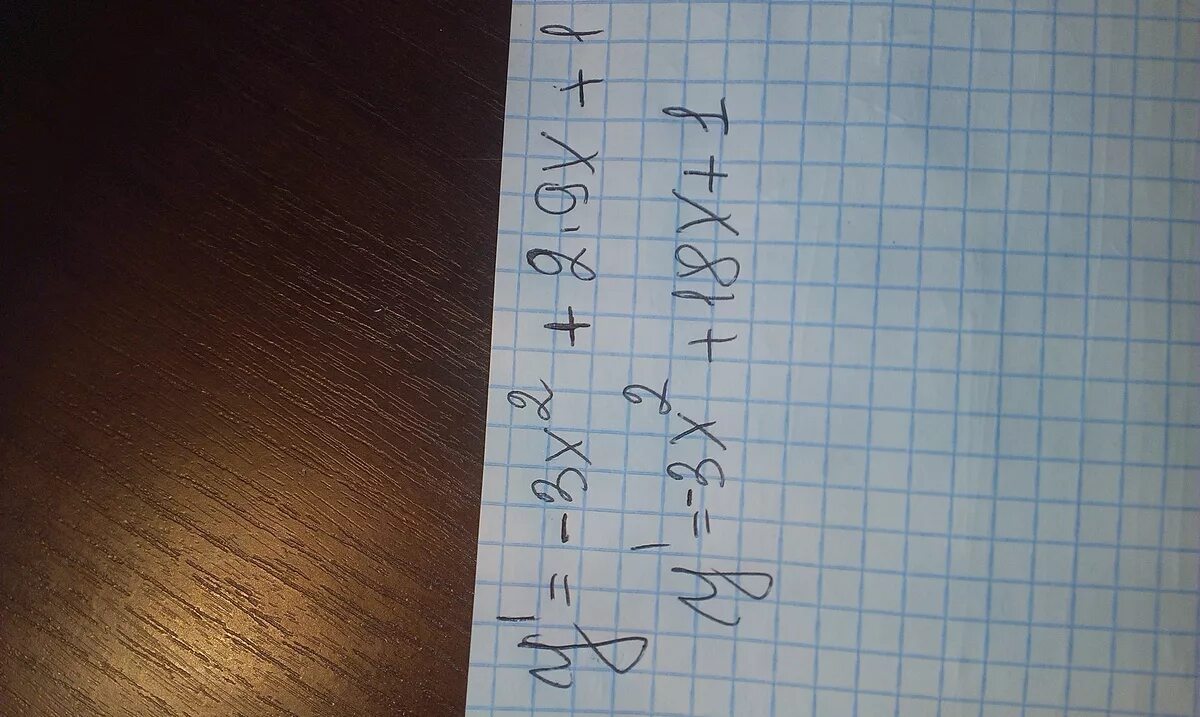 y' = -3x² + 2·9x + 1
y' = -3x² + 18x + 1